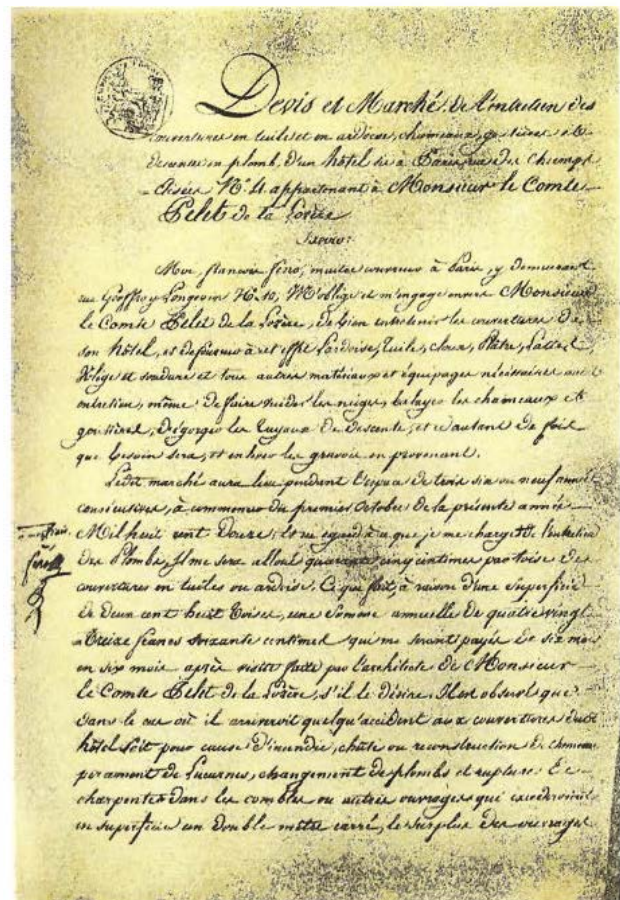 Devis et Marché de l'entretien des
couvertures en tuile et en ardoise, chaineaux, goutières et
descente en plomb, d'un hôtel sis à Paris, rue des Champs
Elisées N.º 4 appartenant à Monsieur le Comte
Pelet de la Lozère
Savoir:
Moi, françois fero, maitre couvreur à Paris, y demeurant
rue Geoffroy Langevin N.º 10, M'oblige et m'engage envers Monsieur
le Comte Pelet de la Lozère, de bien entretenir les couvertures de
son hôtel, et de fournir à cet effet l'ardoise, tuile, cloux, Plâtre, Latte,
Volige et soudure et tous autres matériaux et équipages nécessaires au
entretien, même de faire vuider les neiges, balayer les chaineaux et
goutières, dégorger les tuyaux de descente, et ce autant de fois
que besoin sera, et enlever les gravois en provenant.
Ledit marché aura lieu pendant l'espace de trois six ou neuf années
consécutives, à commencer du premier Octobre de la présente année
Mil huit cent Douze, et eu égard à ce que je me charge de l'entretien
des Plombs, Il me sera alloué quarante cinq centimes par toise de
couvertures en tuiles ou ardoise. Ce qui fait, à raison d'une superficie
de deux cent huit toises, une somme annuelle de quatre vingt
treize francs soixante centimes qui me seront payés de six mois
en six mois après visite faite par l'architecte de Monsieur
le Comte Pelet de la Lozère, s'il le désire. Il est observé que
dans le cas où il arriveroit quelqu'accident aux couvertures dudit
hôtel soit pour cause d'incendie, chûte ou reconstruction de cheminées
percement de Lucarnes, changement de plombs et rupture de
charpentes dans les combles ou autres ouvrages qui excéderoient
en superficie un double mètre carré, le surplus des ouvrages
fero